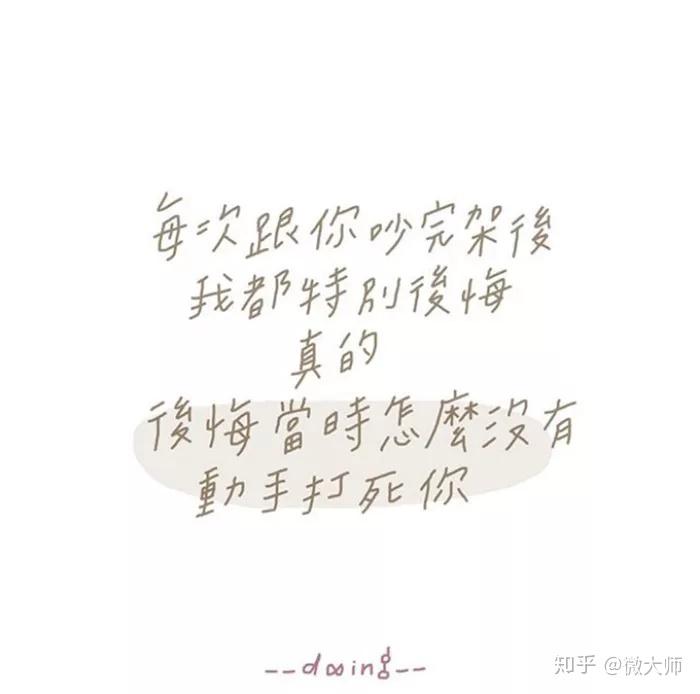 每次跟你吵完架後
我都特別後悔
真的
後悔當時怎麼沒有
動手打死你
--d∞ing--
知乎 @微大师